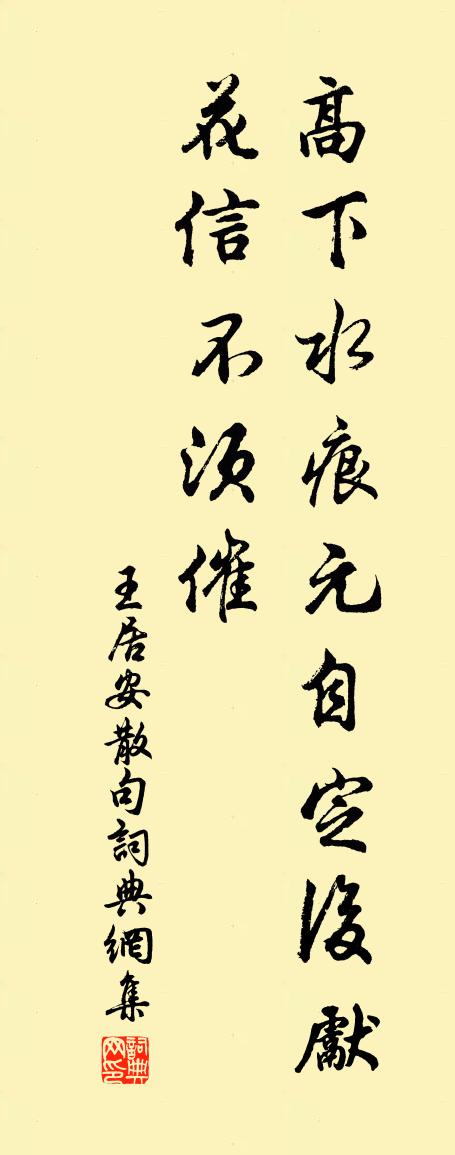 高下水痕元自定後獻
花信不須催
王居安散句詞典網集
詞典
网印